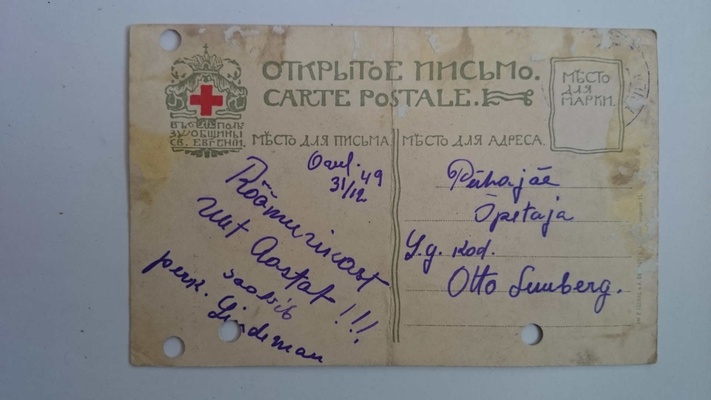 ОТКРЫТОЕ ПИСЬМО.
CARTE POSTALE.
МѢСТО
ДЛЯ
МАРКИ.
ВЪ ПОЛЬ
ОБЩИНЫ
СВ. ЕВГЕНІИ.
МѢСТО ДЛЯ ПИСЬМА
МѢСТО ДЛЯ АДРЕСА.
49
31/12
Rõõmurikast
uut Aastat !!!
soovib
perk. Lindeman
Pühajõe
Õpetaja
L.g. kod.
Otto Sumberg.